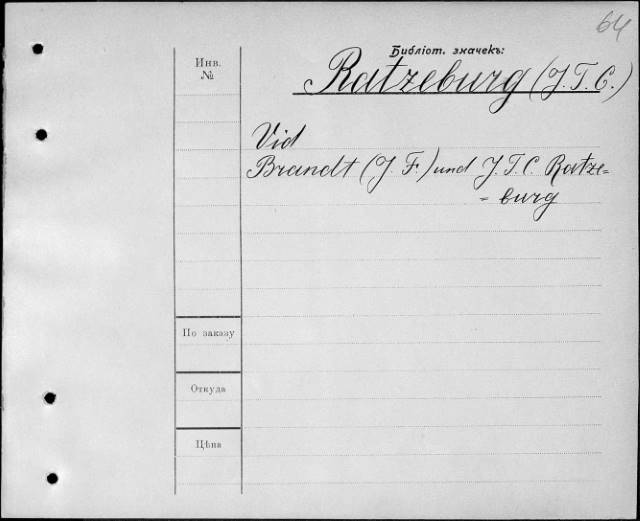 64
Библіот. значекъ:
Инв.
№
Ratzeburg (J. T. C.)
Vid
Brandt (J. F.) und J. T. C. Ratze=
= burg
По заказу
Откуда
Цѣна